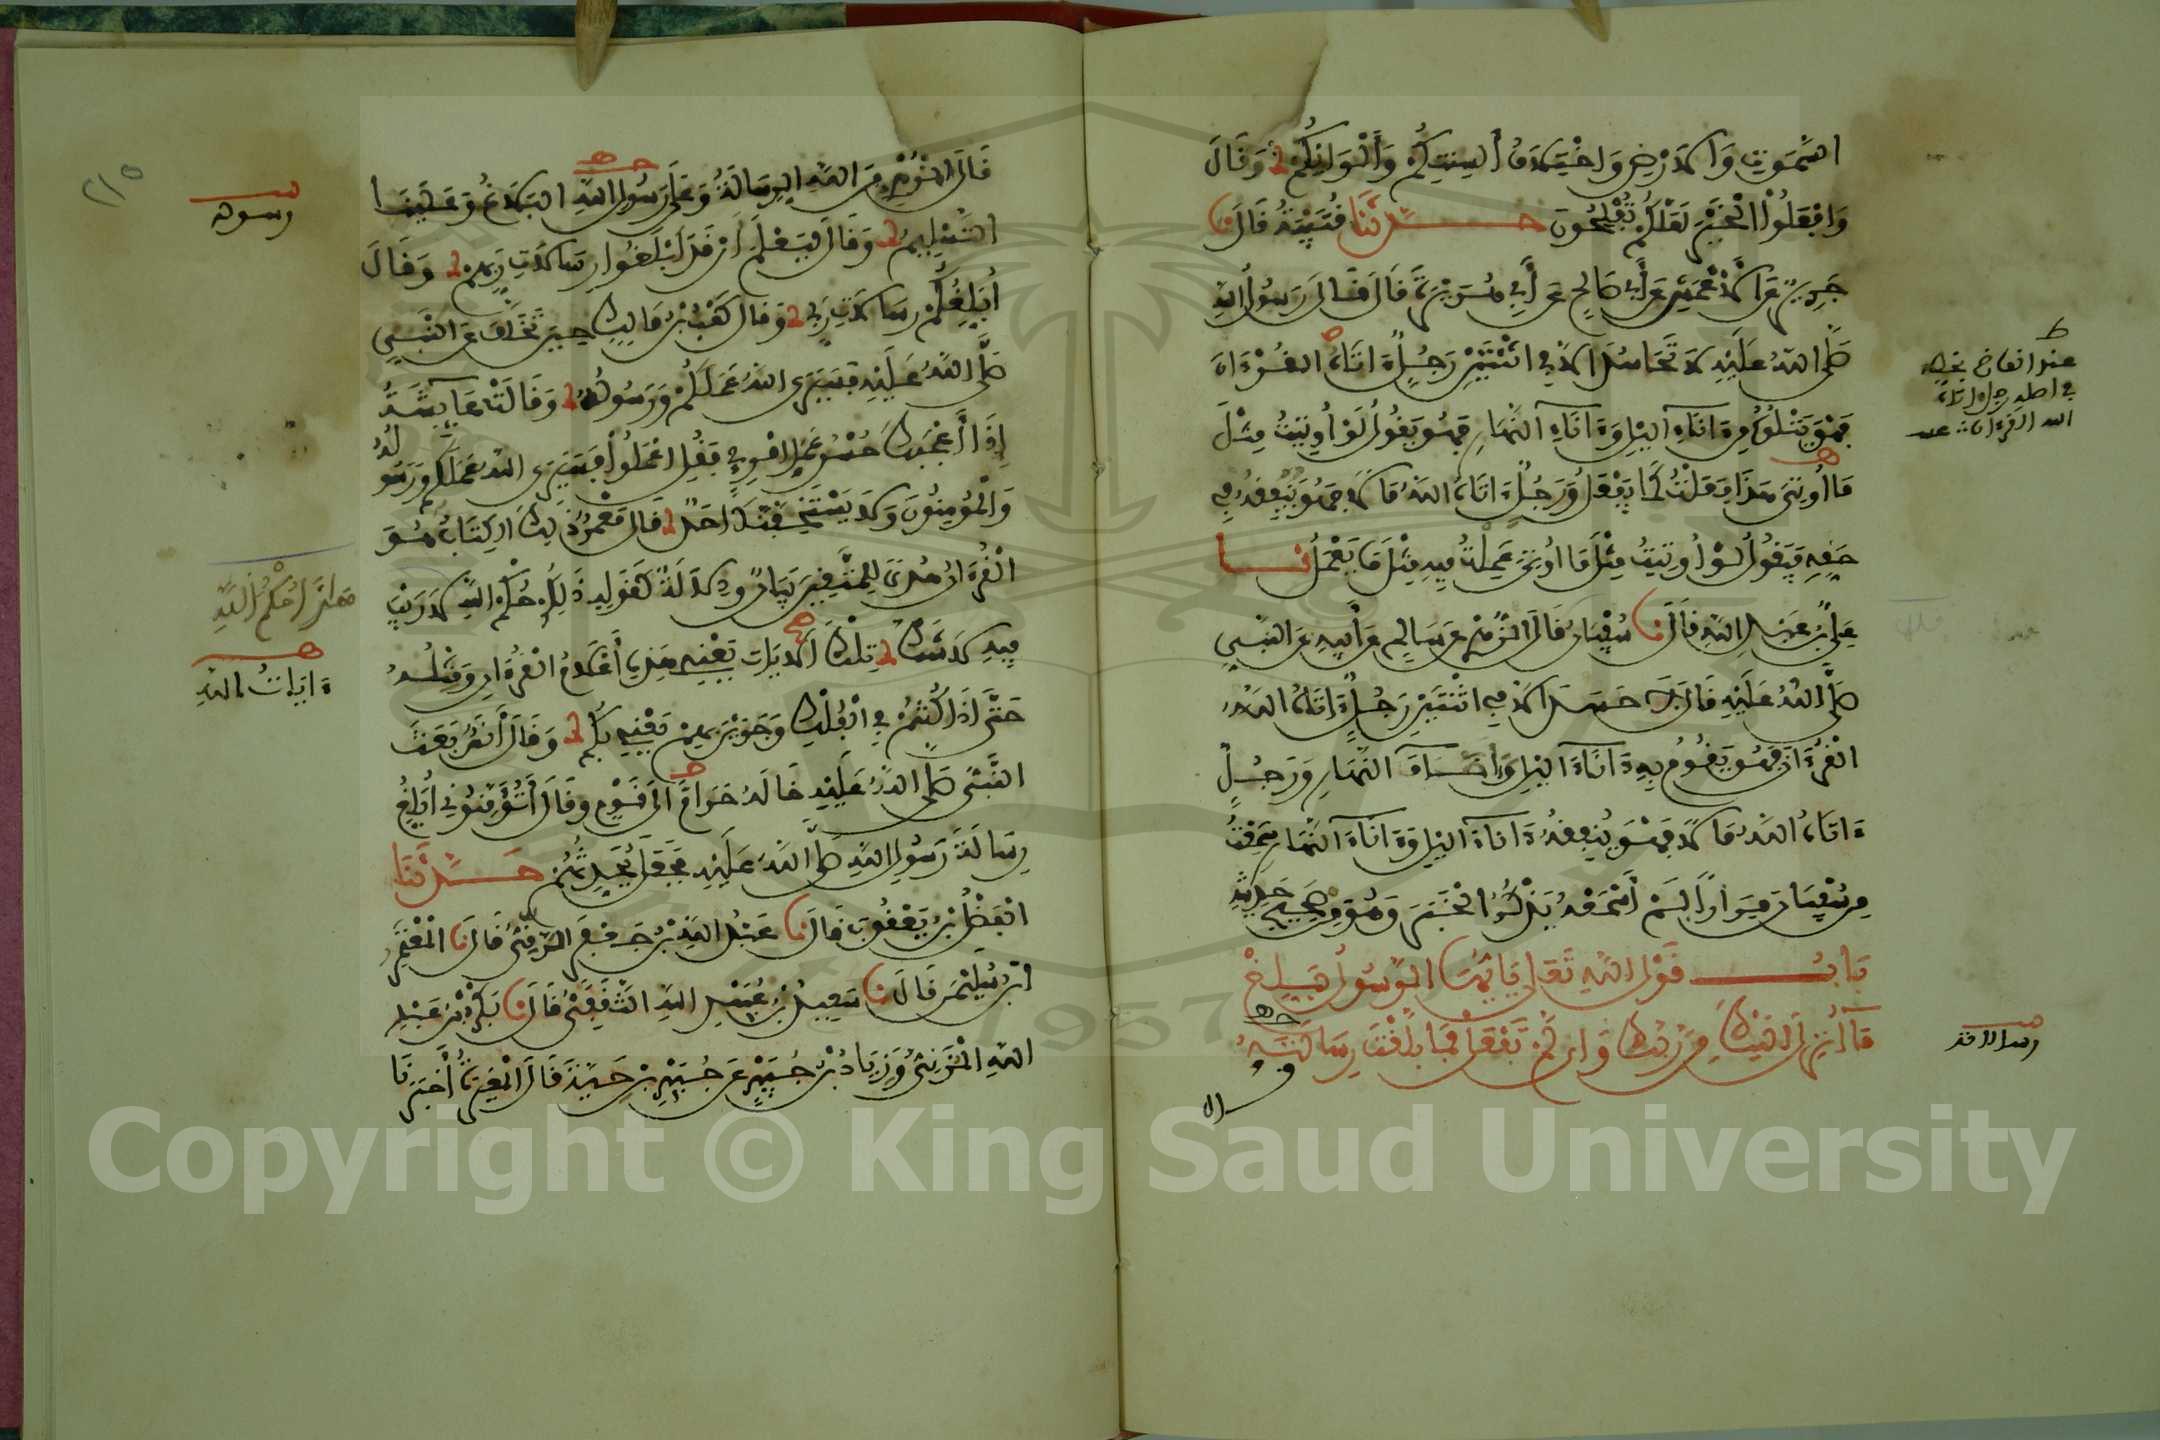 السموات والارض واختلاف السنتكم وألوانكم وقال
وافعلوا الخير لعلكم تفلحون حدثنا قتيبة قال نا
جرير عن الاعمش عن أبي صالح عن أبي هريرة قال قال رسول الله
صلى الله عليه لا تحاسد الا في اثنتين رجل ءاتاه الله القرءان
فهو يتلوه ءاناء اليل وءاناء النهار فهو يقول لو أوتيت مثل
ما أوتي هذا لفعلت كما يفعل ورجل ءاتاه الله مالا فهو ينفقه في
حقه فيقول لو أوتيت مثل ما أوتي عملت فيه مثل ما يعمل نا
علي بن عبد الله قال نا سفيان قال الزهري عن سالم عن أبيه عن النبي
صلى الله عليه قال لا حسد الا في اثنتين رجل ءاتاه الله
القرءان فهو يقوم به ءاناء اليل وءاناء النهار ورجل
ءاتاه الله مالا فهو ينفقه ءاناء اليل وءاناء النهار سمعت
من سفيان مرارا لم أسمعه يذكر الخبر وهو من صحيح حديثه
باب قول الله تعلى يايها الرسول بلغ
ما أنزل اليك من ربك وان لم تفعل فما بلغت رسالته
رسالاته
وقال
قال الزهري من الله الرسالة وعلى رسول الله البلاغ وعلينا
التسليم وقال ليعلم أن قد ابلغوا رسالات ربهم وقال
أبلغكم رسالات ربي وقال كعب بن مالك حين تخلف عن النبي
صلى الله عليه فسيرى الله عملكم ورسوله وقالت عايشة
إذا أعجبك حسن عمل امرئ فقل اعملوا فسيرى الله عملكم ورسوله
والمؤمنون ولا يستخفنك احد قال معمر ذلك الكتاب هو
القرءان هدى للمتقين بيان ودلالة كقوله ذلكم حكم الله لا ريب
فيه لا شك تلك الآيات يعني هذه أعلام القرءان ومثله
حتى اذا كنتم في الفلك وجرين بهم يعني بكم وقال أنس بعث
النبي صلى الله عليه خاله حراما الى قوم وقال أتؤمنوني أبلغ
رسالة رسول الله صلى الله عليه فجعل يحدثهم حدثنا
الفضل بن يعقوب قال نا عبد الله بن جعفر الرقي قال نا المعتمر
ابن سليمن قال نا سعيد بن عبيد الله الثقفي قال نا بكر بن عبد
الله المزني وزياد بن جبير عن جبير بن حية قال المغيرة أخبرنا
رسوله
هذا حكم الله
ءايات الله
٢١٥
Copyright © King Saud University
1957